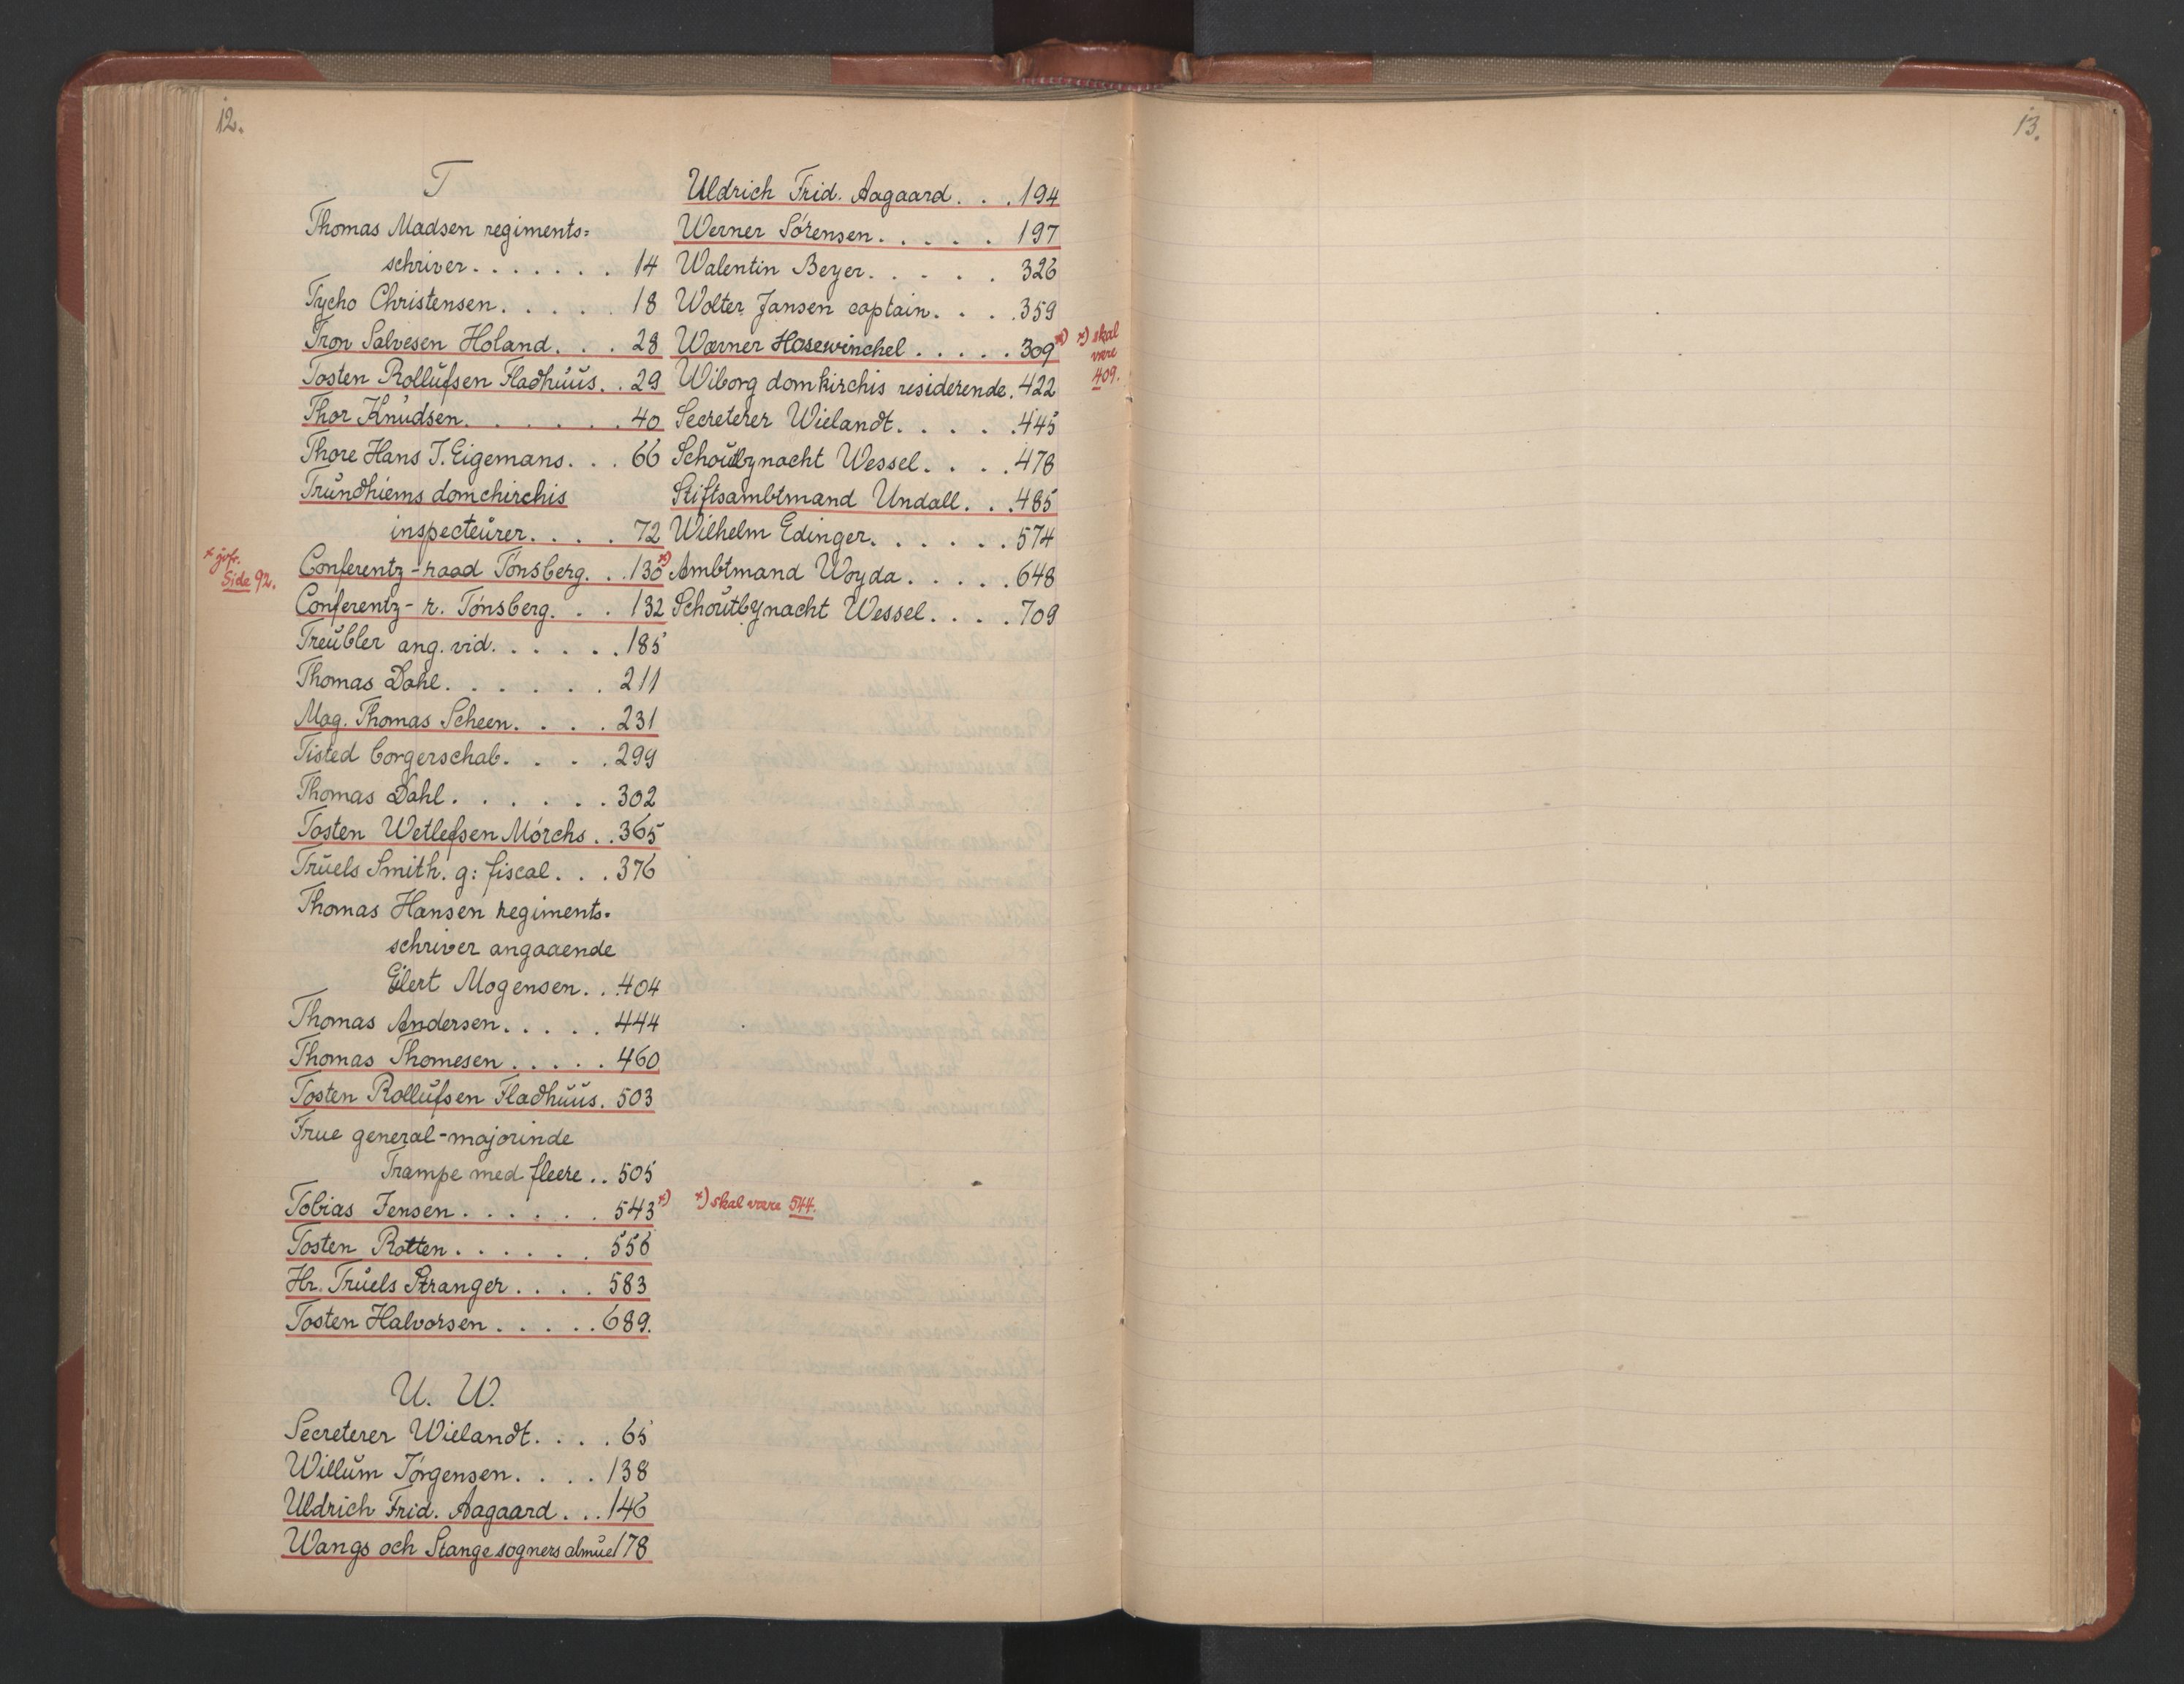 12.
T
Thomas Madsen regiments=
schriver. . . . . . . 14
Tycho Christensen. . . . . 18
Tron Salvesen Holand. . . 28
Tosten Rollufsen Fladhuus. . 29
Thor Knudsen. . . . . . . 40
Thore Hans T. Eigemans. . . 66
Trundhiems domchirchis
inspecteurer. . . . 72
* jvfr.
Side 92.
Conferentz-raad Tönsberg. . .130 *)
Conferentz- r. Tönsberg. . . 132
Treubler ang. vid. . . . . . 185
Thomas Dahl. . . . . . . 211
Mag. Thomas Scheen. . . . 231
Tisted borgerschab. . . . . 299
Thomas Dahl. . . . . . . 302
Tosten Wetlefsen Mörchs . . 365
Truels Smith. g: fiscal. . . 376
Thomas Hansen regiments=
schriver angaaende
Eilert Mogensen. . . 404
Thomas Andersen. . . . . 444
Thomas Thomesen . . . . . 460
Tosten Rollufsen Fladhuus. 503
Frue general-majorinde
Trampe med fleere . . 505
Tobias Jensen. . . . . . . 543 *)
*) skal være 544.
Tosten Rotten. . . . . . . 556
Hr. Truels Stranger. . . . . 583
Tosten Halvorsen . . . . . 689.
U. W.
Secreterer Wielandt. . . . 65
Willum Jörgensen. . . . . 138
Uldrich Frid. Aagaard. . . 146
Wangs och Stange sogners almue 178
Uldrich Frid. Aagaard. . . 194
Werner Sörensen. . . . . 197
Walentin Beyer. . . . . 326
Wolter Jansen captain. . . . 359
Wærner Hasewinchel . . . . . 309 *)
*) skal
være
409.
Wiborg domkirchis residerende. 422
Secreterer Wielandt. . . . . 445
Schoutbynacht Wessel. . . . 478
Stiftsambtmand Undall. . . 485
Wilhelm Edinger. . . . . . 574
Ambtmand Woyda . . . . . 648
Schoutbynacht Wessel. . . . . 709
13.